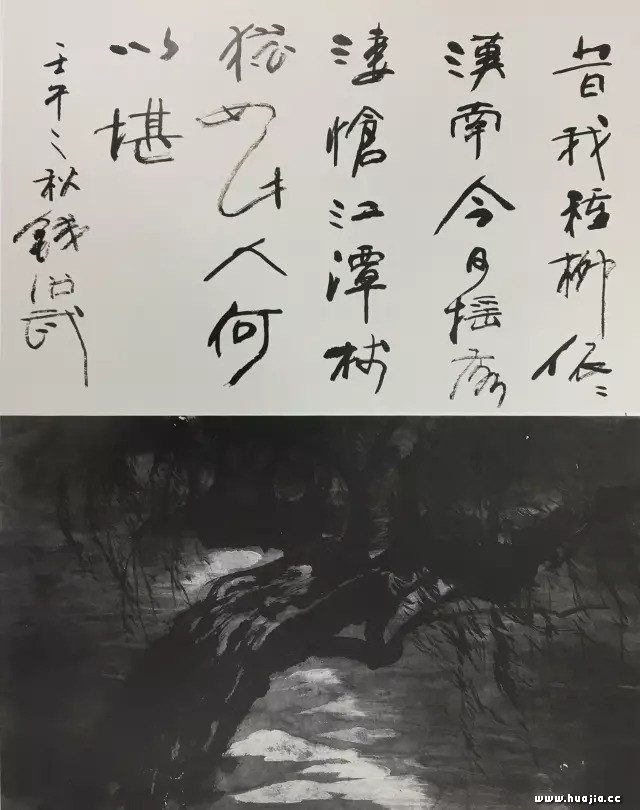 昔我種柳依〻
漢南今日搖落
淒愴江潭树
猶如此人何
以堪
壬午之秋錢武
www.huajia.cc